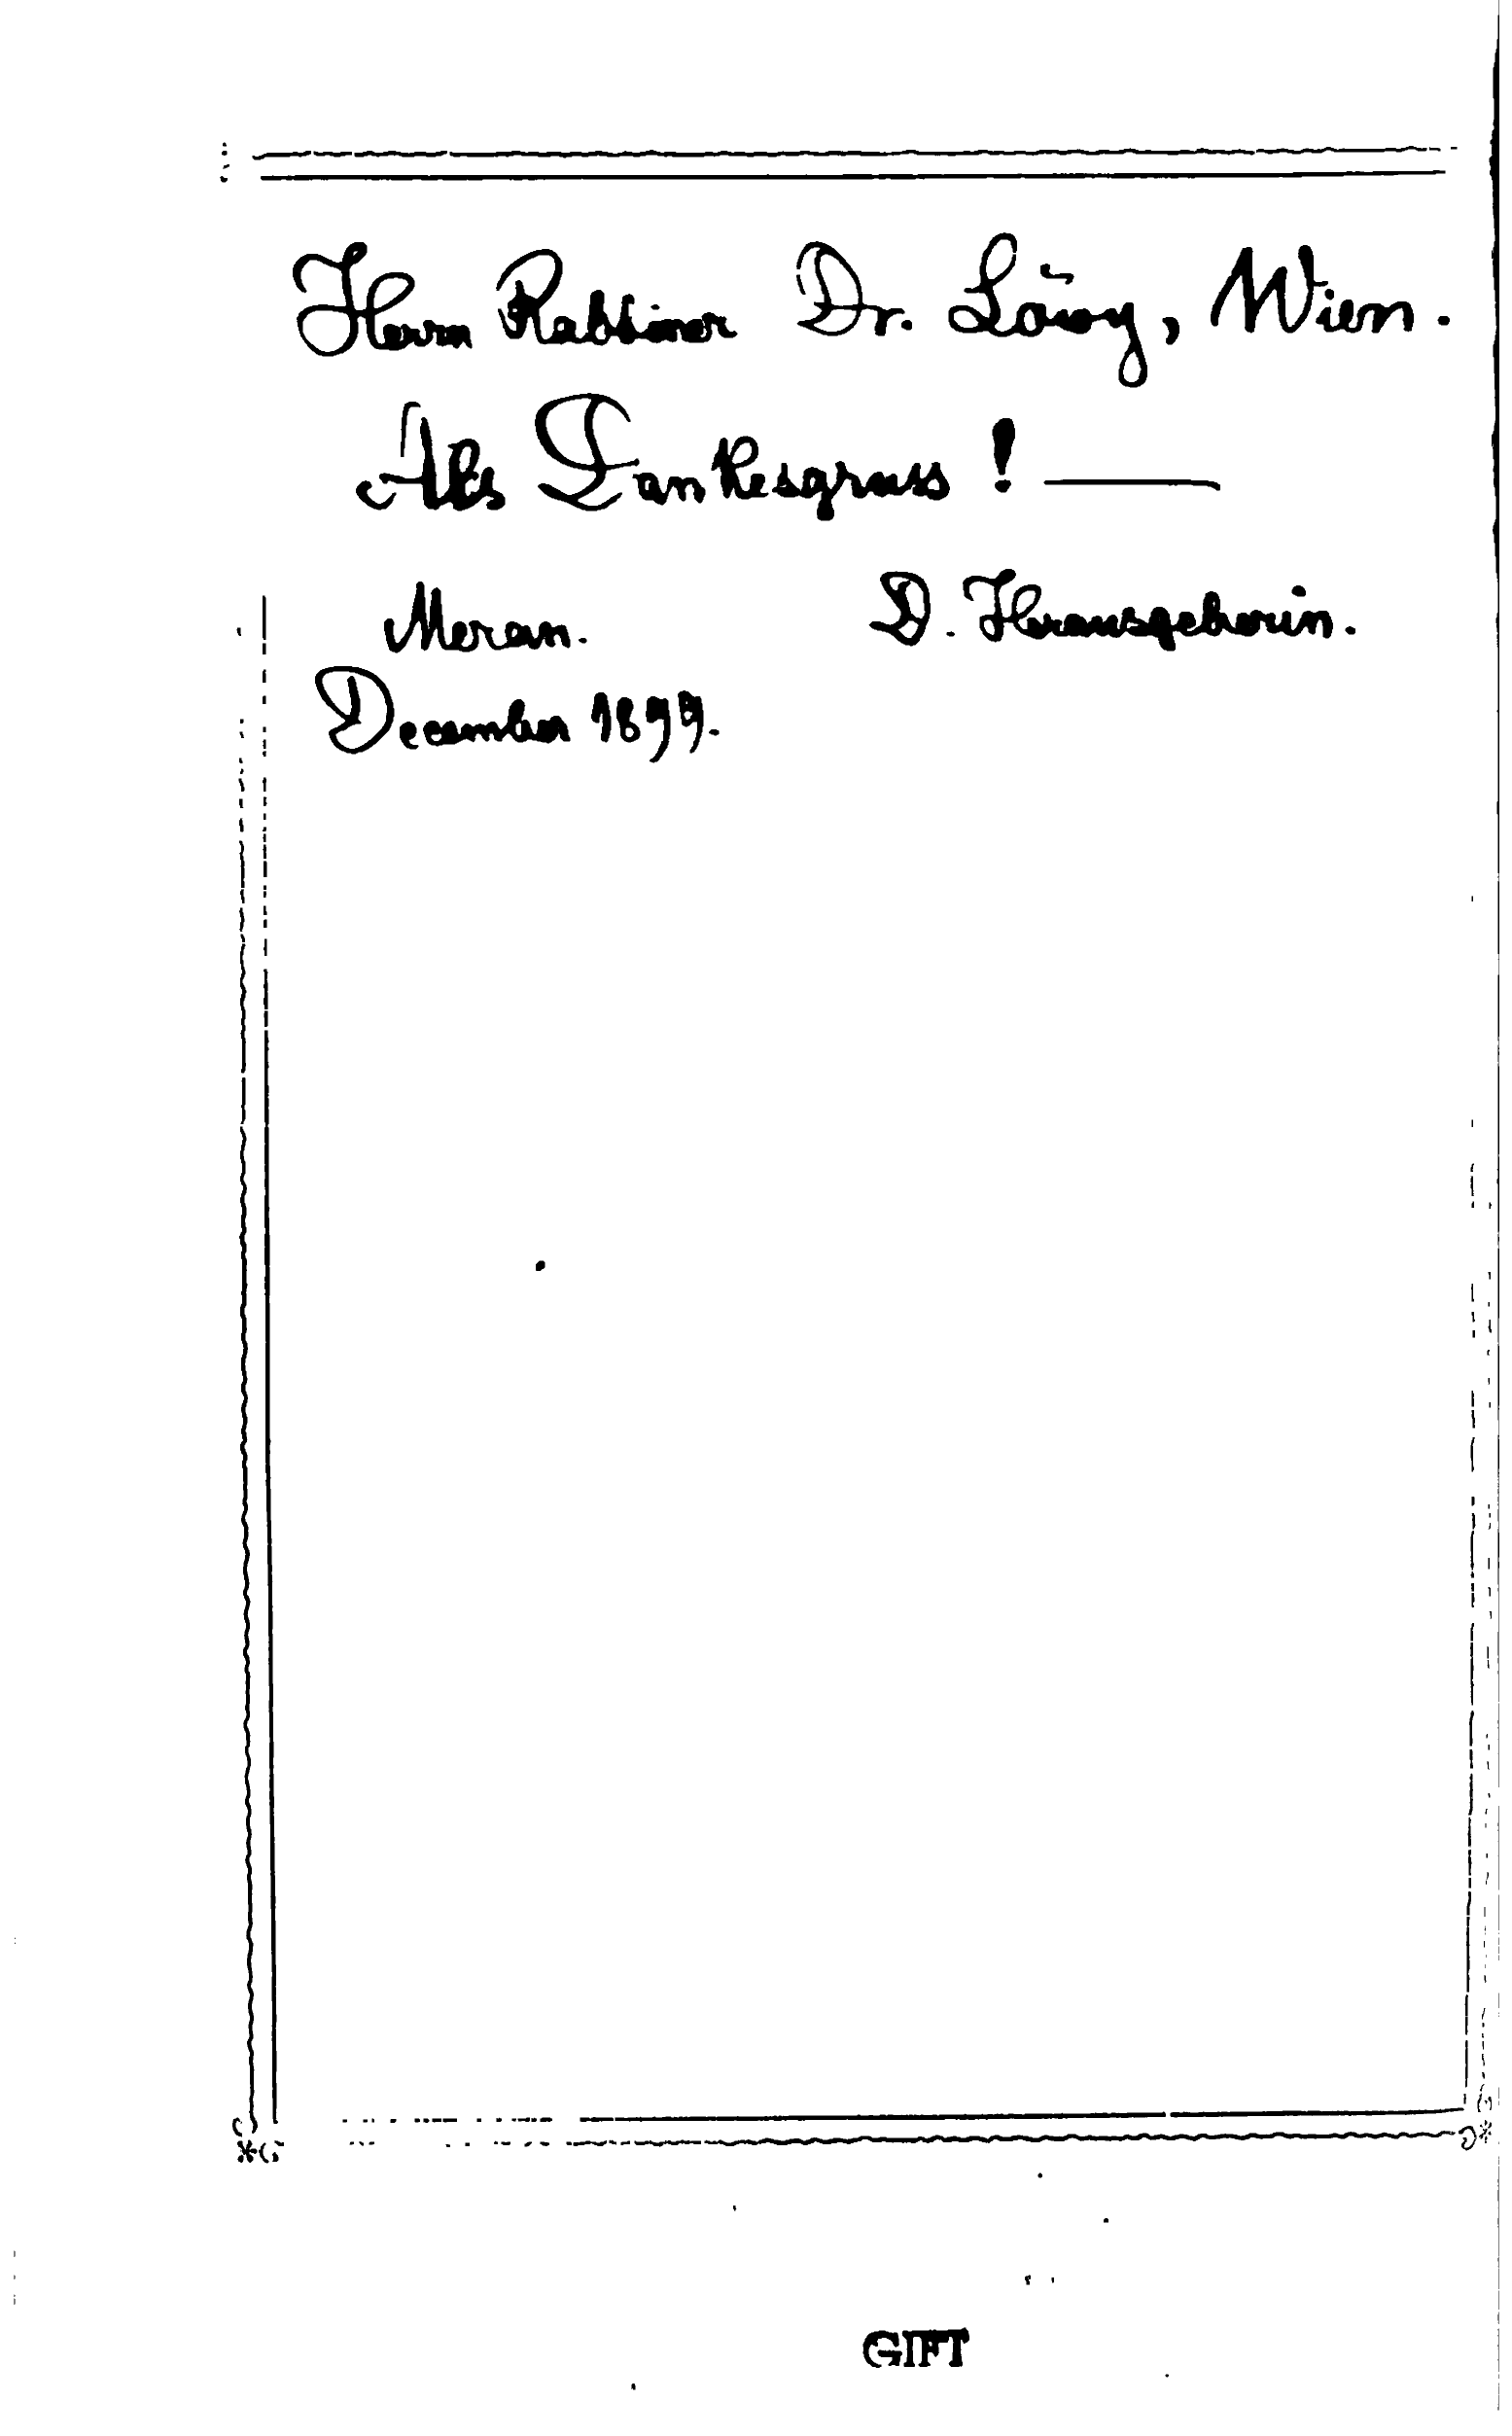 Herrn Rabbiner Dr. Löwy, Wien.
Als Dankesgruss! —
Meran. D. Herausgeberin.
December 1899.
GIFT